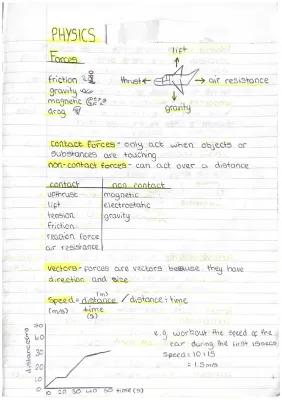 PHYSICS
Forces
lift
friction
thrust
air resistance
gravity
magnetic
drag
gravity
contact forces - only act when objects or
substances are touching
non-contact forces - can act over a distance
contact | non contact
upthrust | magnetic
lift | electrostatic
tension | gravity
friction
reaction force
air resistance
vectors - forces are vectors because they have
direction and size
Speed = distance (m) / distance ÷ time
(m/s) time (s)
distance (m)
50
40
30
20
10
0 10 20 30 40 50 time (s)
e.g workout the speed of the
car during the first 15 secs
speed = 10 ÷ 15
= 1.5 m/s